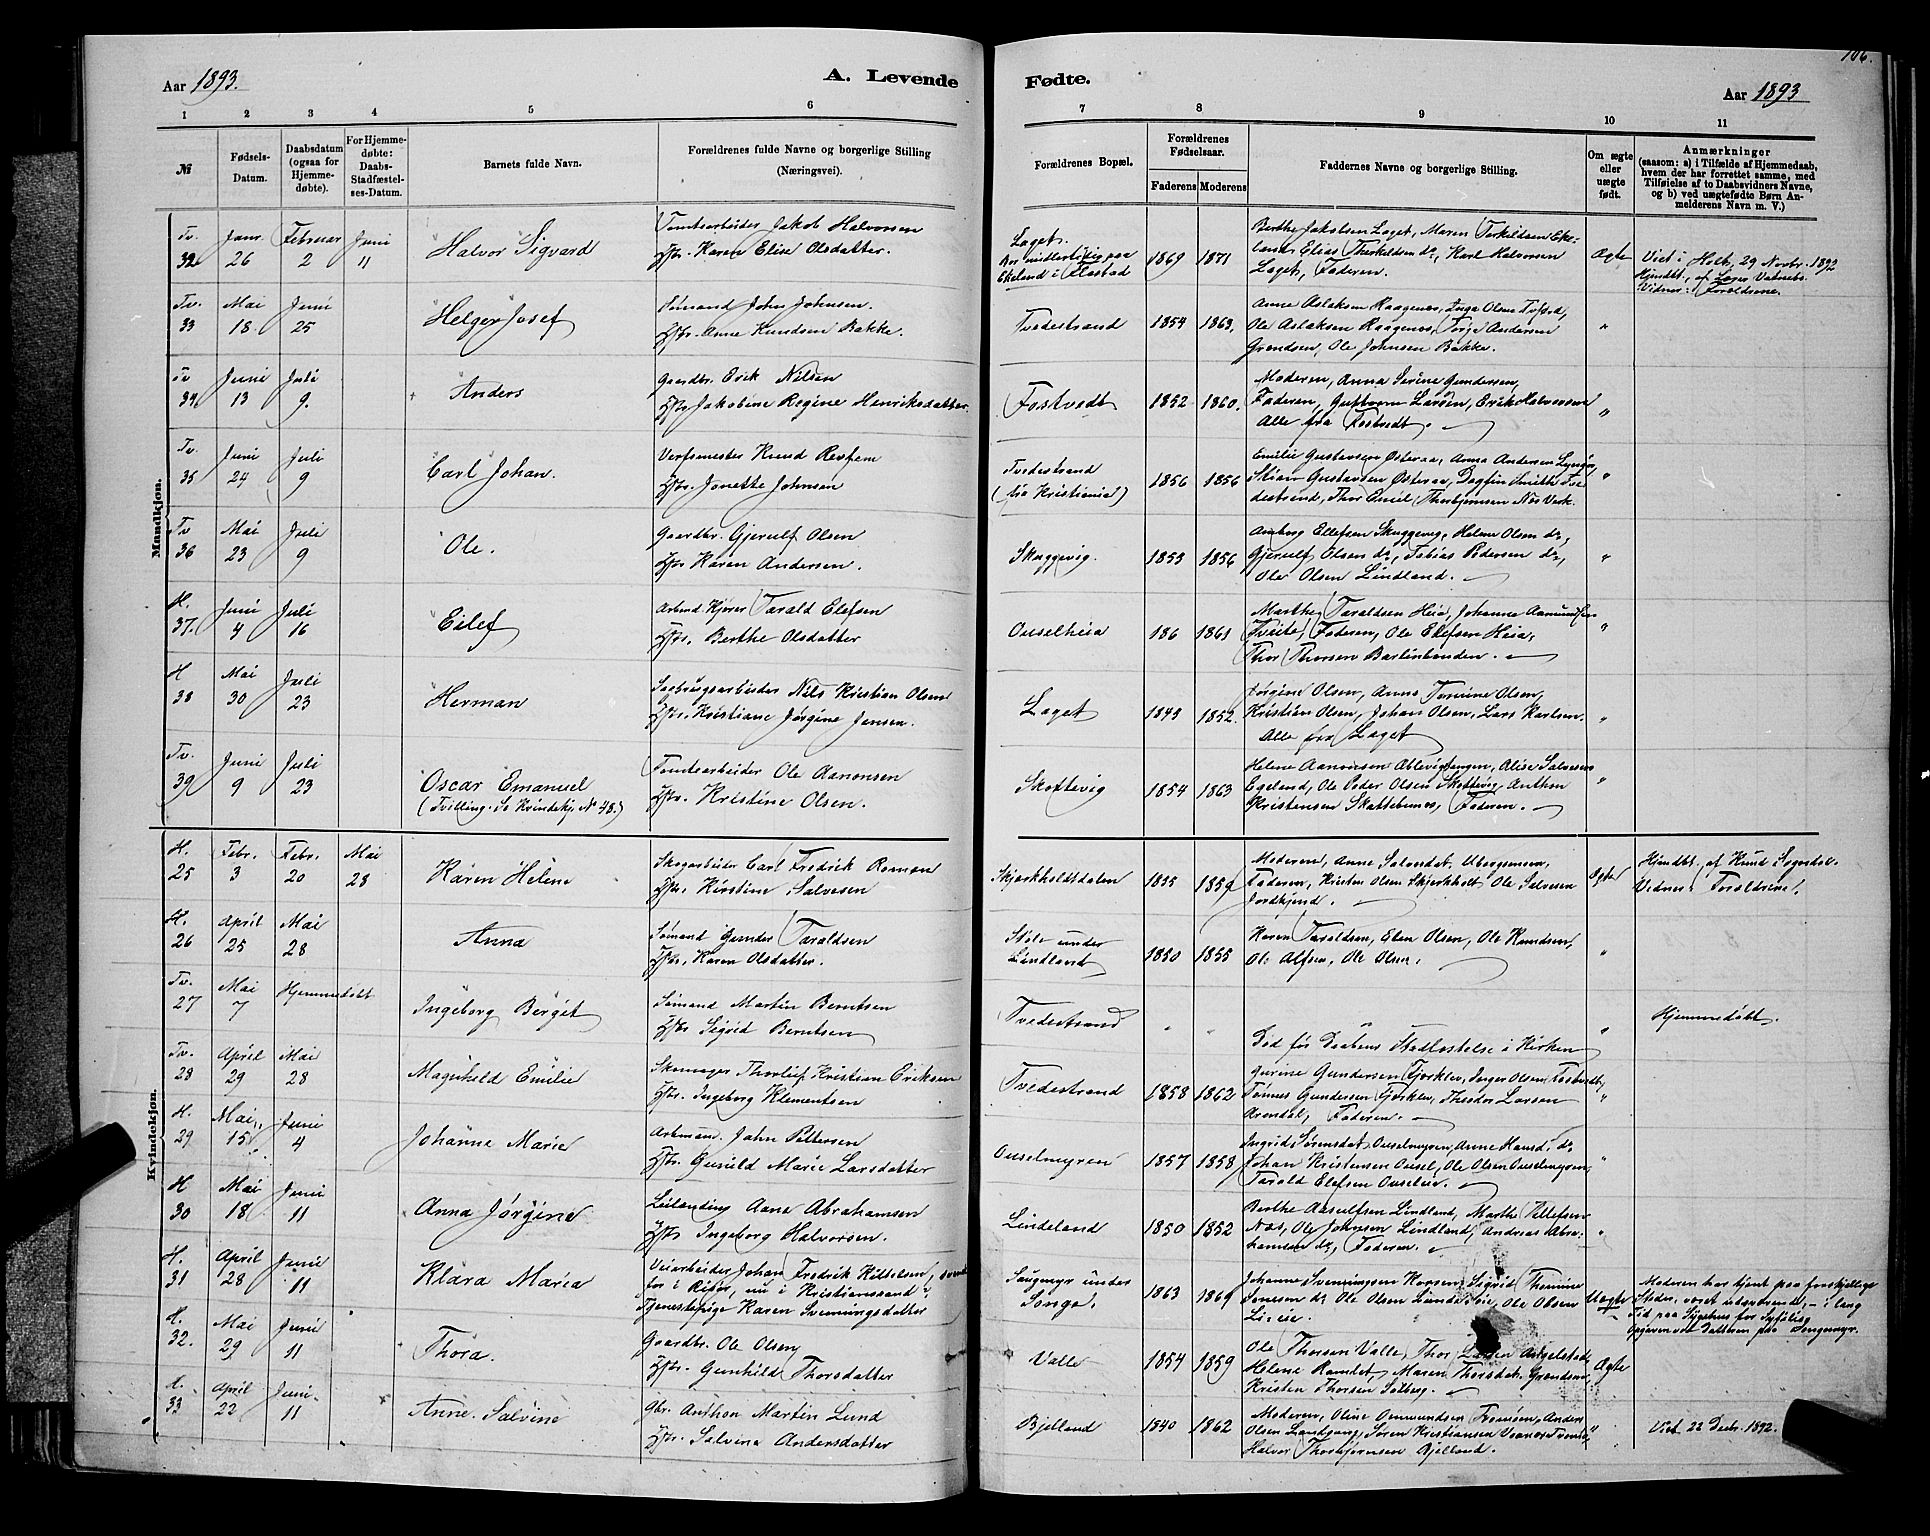 106.
Aar 1893.
A. Levende
Fødte.
Aar 1893
1 2 3 4 5 6 7 8 9 10 11
№
Fødsels-
Datum.
Daabsdatum
(ogsaa for
Hjemme-
døbte).
For Hjemme-
døbte:
Daabs-
Stadfæstel-
ses-Datum.
Barnets fulde Navn.
Forældrenes fulde Navne og borgerlige Stilling
(Næringsvei).
Forældrenes Bopæl.
Forældrenes
Fødselsaar.
Faderens Moderens
Faddernes Navne og borgerlige Stilling.
Om ægte
eller
uægte
født.
Anmærkninger
(saasom: a) i Tilfælde af Hjemmedaab,
hvem der har forrettet samme, med
Tilføielse af to Daabsvidners Navne,
og b) ved uægtefødte Børn An-
melderens Navn m. V.)
Mandkjøn.
Tv. 32 Janr. 26 Februar 2 Juni 11
Halvor Sigvard
Tomtearbeider Jakob Halvorsen
Karen Elise Olsdatter.
Laget.
Ekeland i Flostad
1869 1871
Berthe Jakobsen Laget, Maren Terkildsen Eke-
land, Elias Therkeldsen do, Karl Halvorsen
Laget, Faderen.
Ægte
Viet i Holt, 29 Novbr. 1892
Vidner: Forældrene.
Tv. 33 Mai 18 Juni 25
Helge Josef
Sømand John Johnsen.
Anne Knudsen Bakke.
Tvedestrand
1854 1863.
Ole Aslaksen Raagenes, Terje Andersen
Grendsen, Ole Johnsen Bakke.
"
Tv 34 Juni 13 Juli 9.
Anders
Gaardbr. Erik Nilsen
Jakobine Regine Henriksdatter
Fostvedt
1852 1860.
Moderen, Anna Serine Gundersen,
Faderen, Guttorm Larsen, Erik Halvorsen
Alle fra Fostvedt.
"
Tv. 35 Juni 24 Juli 9
Carl Johan.
Verfsmester Knud Revfem
Jonette Johnsen
Tvedestrand
(fra Kristiania)
1856 1856
Emilie Gustavsen Østeraa, Anna Andersen Lyngør,
Stian Gustavsen Østeraa, Dagfin Smith Tve-
destrand, Thor Emil Thorbjørnsen Næs Verk.
"
Tv 36 Mai 23 Juli 9
Ole.
Gaardbr. Gjerulf Olsen
Karen Andersen.
Skuggevig.
1853 1856
Amborg Ellefsen Skuggevig, Helene Olsen do,
Gjerulf Olsen do, Tobias Pedersen do,
Ole Olsen Lindland.
"
H. 37. Juni 4 Juli 16
Eilef
Tarald Elefsen
Berthe Olsdatter
Ouselheia
186 1861
Marthe Taraldsen Heia, Johanne Aamundsen
Tveite, Faderen, Ole Elefsen Heia,
Thor Thorsen Barlinbonden.
"
H 38 Mai 30 Juli 23
Herman
Sagbrugsarbeider Nils Kristian Olsen
Kristiane Jørgine Jensen.
Laget
1843 1852.
Jørgine Olsen, Anna Tomine Olsen,
Kristian Olsen, Johan Olsen, Lars Karlsen.
Alle fra Laget
"
Tv. 39 Juni 9 Juli 23
Oscar Emanuel
(Tvilling. Se Kvindekj. No 48.)
Tomtearbeider Ole Aanonsen
Kristine Olsen.
Skottevig
1854 1863
Egeland, Ole Peder Olsen Skottevig, Anthon
Kristensen Skattebenes, Faderen.
"
Kvindekjøn.
H. 25 Febr. 3 Febr. 20 Mai 28
Karen Helene
Skogarbeider Carl Fredrik Roman
Kirstine Salvesen
Skjerkholtdalen
1855 1859
Faderen, Kristen Olsen Skjerkholt, Ole Salvesen
Ægte
Hjmdbt. af Knud Sogndal.
Vidner: Forældrene.
H. 26 April 25 Mai 28
Anna
Sømand Gunder Taraldsen
Karen Olsdatter.
Støle under
Lindland
1850 1855
Karen Taraldsen, Elen Olsen, Ole Knudsen,
Ole Alfsen, Ole Olsen.
"
Tv. 27 Mai 7 Hjemmedøbt
Ingeborg Bergit
Sømand Martin Berntsen
Sigrid Berntsen
Tvedestrand
" "
Død før Daabens Stadfæstelse i Kirken
"
Hjemmedøbt.
Tv. 28 April 29 Mai 28
Magnhild Emilie
Skomager Thorleif Kristian Eriksen
Ingeborg Klementsen
Tvedestrand
1858 1862
Gurine Gundersen Fjerkleiv, Inger Olsen Fostvedt,
Tønnes Gundersen Fjerkleiv, Theodor Larsen
Arendal, Faderen.
"
H. 29 Mai 15 Juni 4
Johanne Marie
Arbmand. John Pettersen
Gunild Marie Larsdatter
Ouselmyren
1857 1858
Ingrid Sørensdat. Ouselmyren, Anne Hansd. do
Johan Kristensen Ousel, Ole Olsen Ouselmyren,
Tarald Elefsen Ouselheia.
"
H 30 Mai 18 Juni 11
Anna Jørgine
Leilending Aane Abrahamsen
Ingeborg Halvorsen.
Lindeland
1850 1852
Berthe Aasulfsen Lindland, Marthe Tellefsen
Næs, Ole Johnsen Lindland, Andreas Abra-
hamsen do, Faderen.
"
H. 31 April 28 Juni 11
Klara Maria
Veiarbeider Johan Fredrik Kittelsen,
for i Risør, nu i Kristianssand
Tjenestepige Karen Svenningsdatter
Songmyr under
Songe.
1863 1869
Johanne Svenningsen Korsen, Sigrid Thomine
Jensen do, Ole Olsen
Uægte
Moderen har tjent paa forskjellige
Steder, været udsvævende, – i lang
Tid paa Sygehus for Syfilis.
H. 32. Mai 29 Juni 11
Thora.
Gaardbr. Ole Olsen
Gunhild Thorsdatter
Valle
1854 1859
Ole Thorsen Valle, Thor Larsen Angelstad,
Helene Ramdet, Maren Thorsdat. Grendsen,
Kristen Thorsen Solberg.
Ægte
H. 33 April 22 Juni 11
Anne Salvine
Gbr. Anthon Martin Lund
Salvine Andersdatter
Bjelland
1840 1862
Moderen, Oline Omundsen Tromøen, Anders
Olsen Landgang, Søren Kristiansen
Halvor Thorbjørnsen Bjelland.
"
Viet 22 Decbr. 1892.